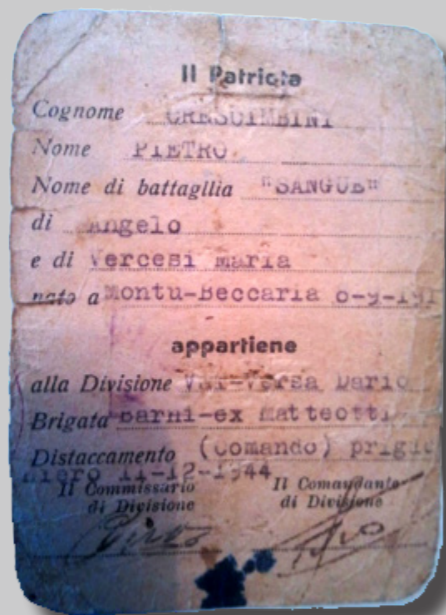 Il Patriota
Cognome CRESCIMBINI
Nome PIETRO
Nome di battagllia "SANGUE"
di Angelo
e di Vercesi Maria
nato a Montu-Beccaria
appartiene
alla Divisione Val-Versa Dario
Brigata Barni-ex Matteotti
Distaccamento (Comando) prigio
niero 11-12-1944
Il Commissario Il Comandante
di Divisione di Divisione